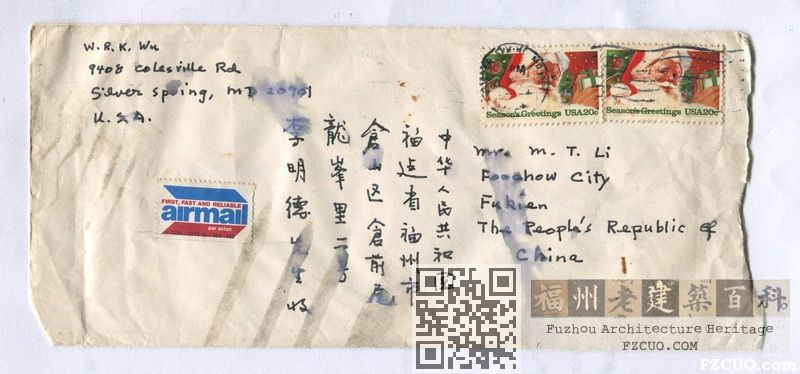 W. R. K. Wu
9408 Colesville Rd
Silver Spring, MD 20901
U.S.A.
Season's Greetings USA20c
Season's Greetings USA20c
FIRST, FAST AND RELIABLE
airmail
par avion
中华人民共和国
福建省福州市
倉山区倉前尾
龍峯里二号
李明德先生收
Mr. M. T. Li
Foochow City
Fukien
The People's Republic of
China
福州老建築百科
Fuzhou Architecture Heritage
FZCUO.COM
FZCUO.com